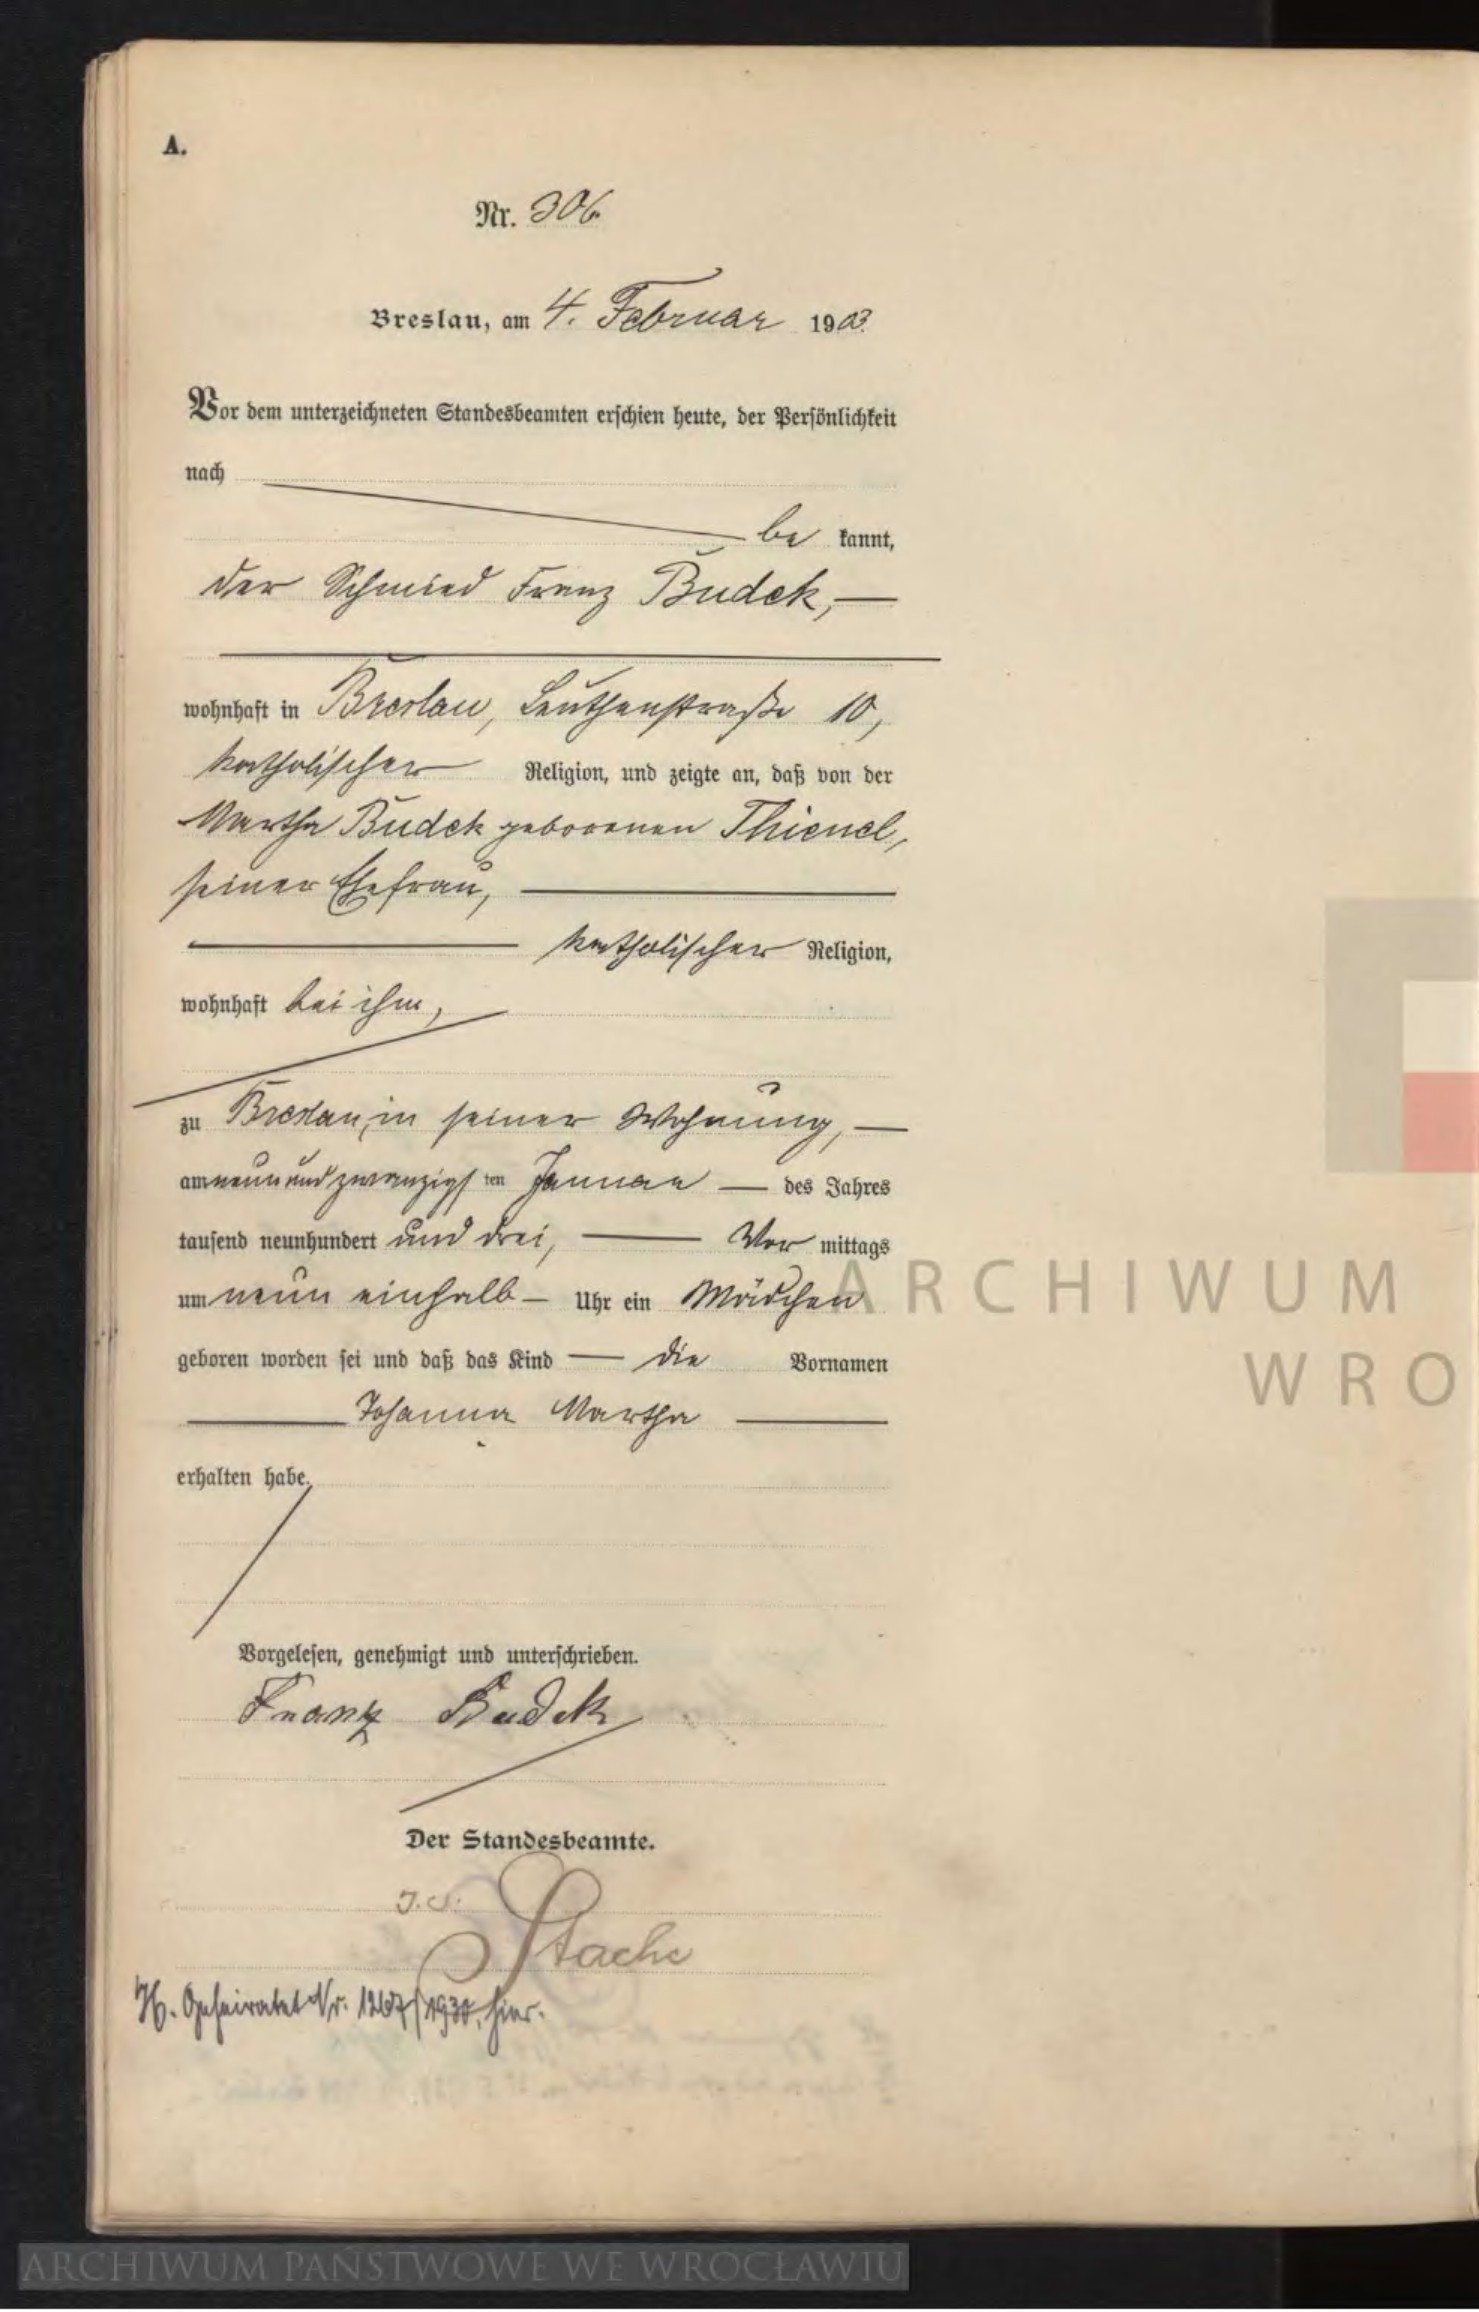 A.
Nr. 306.
Breslau, am 4. Februar 1903.
Vor dem unterzeichneten Standesbeamten erschien heute, der Persönlichkeit
nach
be kannt,
der Schmied Franz Budek,
wohnhaft in Breslau, Leuthenstraße 10,
katholischer Religion, und zeigte an, daß von der
Martha Budek geborenen Thienel,
seiner Ehefrau,
katholischer Religion,
wohnhaft bei ihm,
zu Breslau, in seiner Wohnung,
am neunundzwanzigsten Januar des Jahres
tausend neunhundert und drei, Vor mittags
um neun einhalb Uhr ein Mädchen
geboren worden sei und daß das Kind die Vornamen
Johanna Martha
erhalten habe.
Vorgelesen, genehmigt und unterschrieben.
Franz Budek
Der Standesbeamte.
Stache
Geheiratet Nr. 1267/1930, hier.
ARCHIWUM
WRO
ARCHIWUM PAŃSTWOWE WE WROCŁAWIU